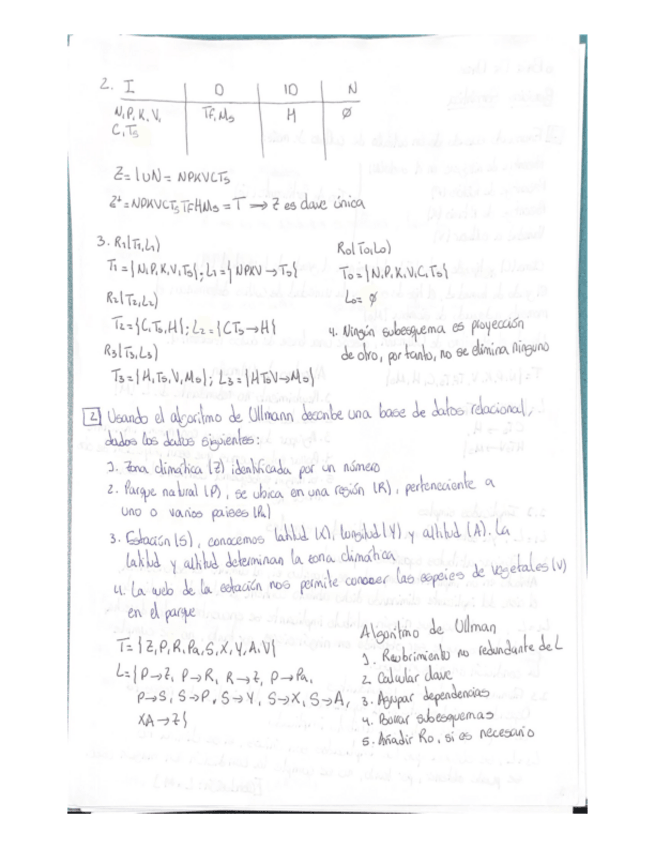 2. I | O | IO | N
N, P, K, V, | Tf, Ms | H | Ø
C, Ts
Z = I ∪ N = NPKVCTs
Z⁺ = NPKVCTsTfHMs = T ⟹ Z es clave única
3. R1(T1, L1)
T1 = {N, P, K, V, Ts}; L1 = {NPKV → Ts}
R2(T2, L2)
T2 = {C, Ts, H}; L2 = {CTs → H}
R3(T3, L3)
T3 = {H, Ts, V, Ms}; L3 = {HTsV → Ms}
R0(T0, L0)
T0 = {N, P, K, V, C, Ts}
L0 = Ø
4. Ningún subesquema es proyección
de otro, por tanto, no se elimina ninguno
2 Usando el algoritmo de Ullmann describe una base de datos relacional,
dados los datos siguientes:
1. Zona climática (Z) identificada por un número
2. Parque natural (P), se ubica en una región (R), perteneciente a
uno o varios paises (Pa)
3. Estación (S), conocemos latitud (X), longitud (Y) y altitud (A). La
latitud y altitud determinan la zona climática
4. La web de la estación nos permite conocer las especies de vegetales (V)
en el parque
T = {Z, P, R, Pa, S, X, Y, A, V}
L = {P → Z, P → R, R → Z, P → Pa,
P → S, S → P, S → Y, S → X, S → A,
XA → Z}
Algoritmo de Ullman
1. Recubrimiento no redundante de L
2. Calcular clave
3. Agupar dependencias
4. Borrar subesquemas
5. Añadir R0, si es necesario